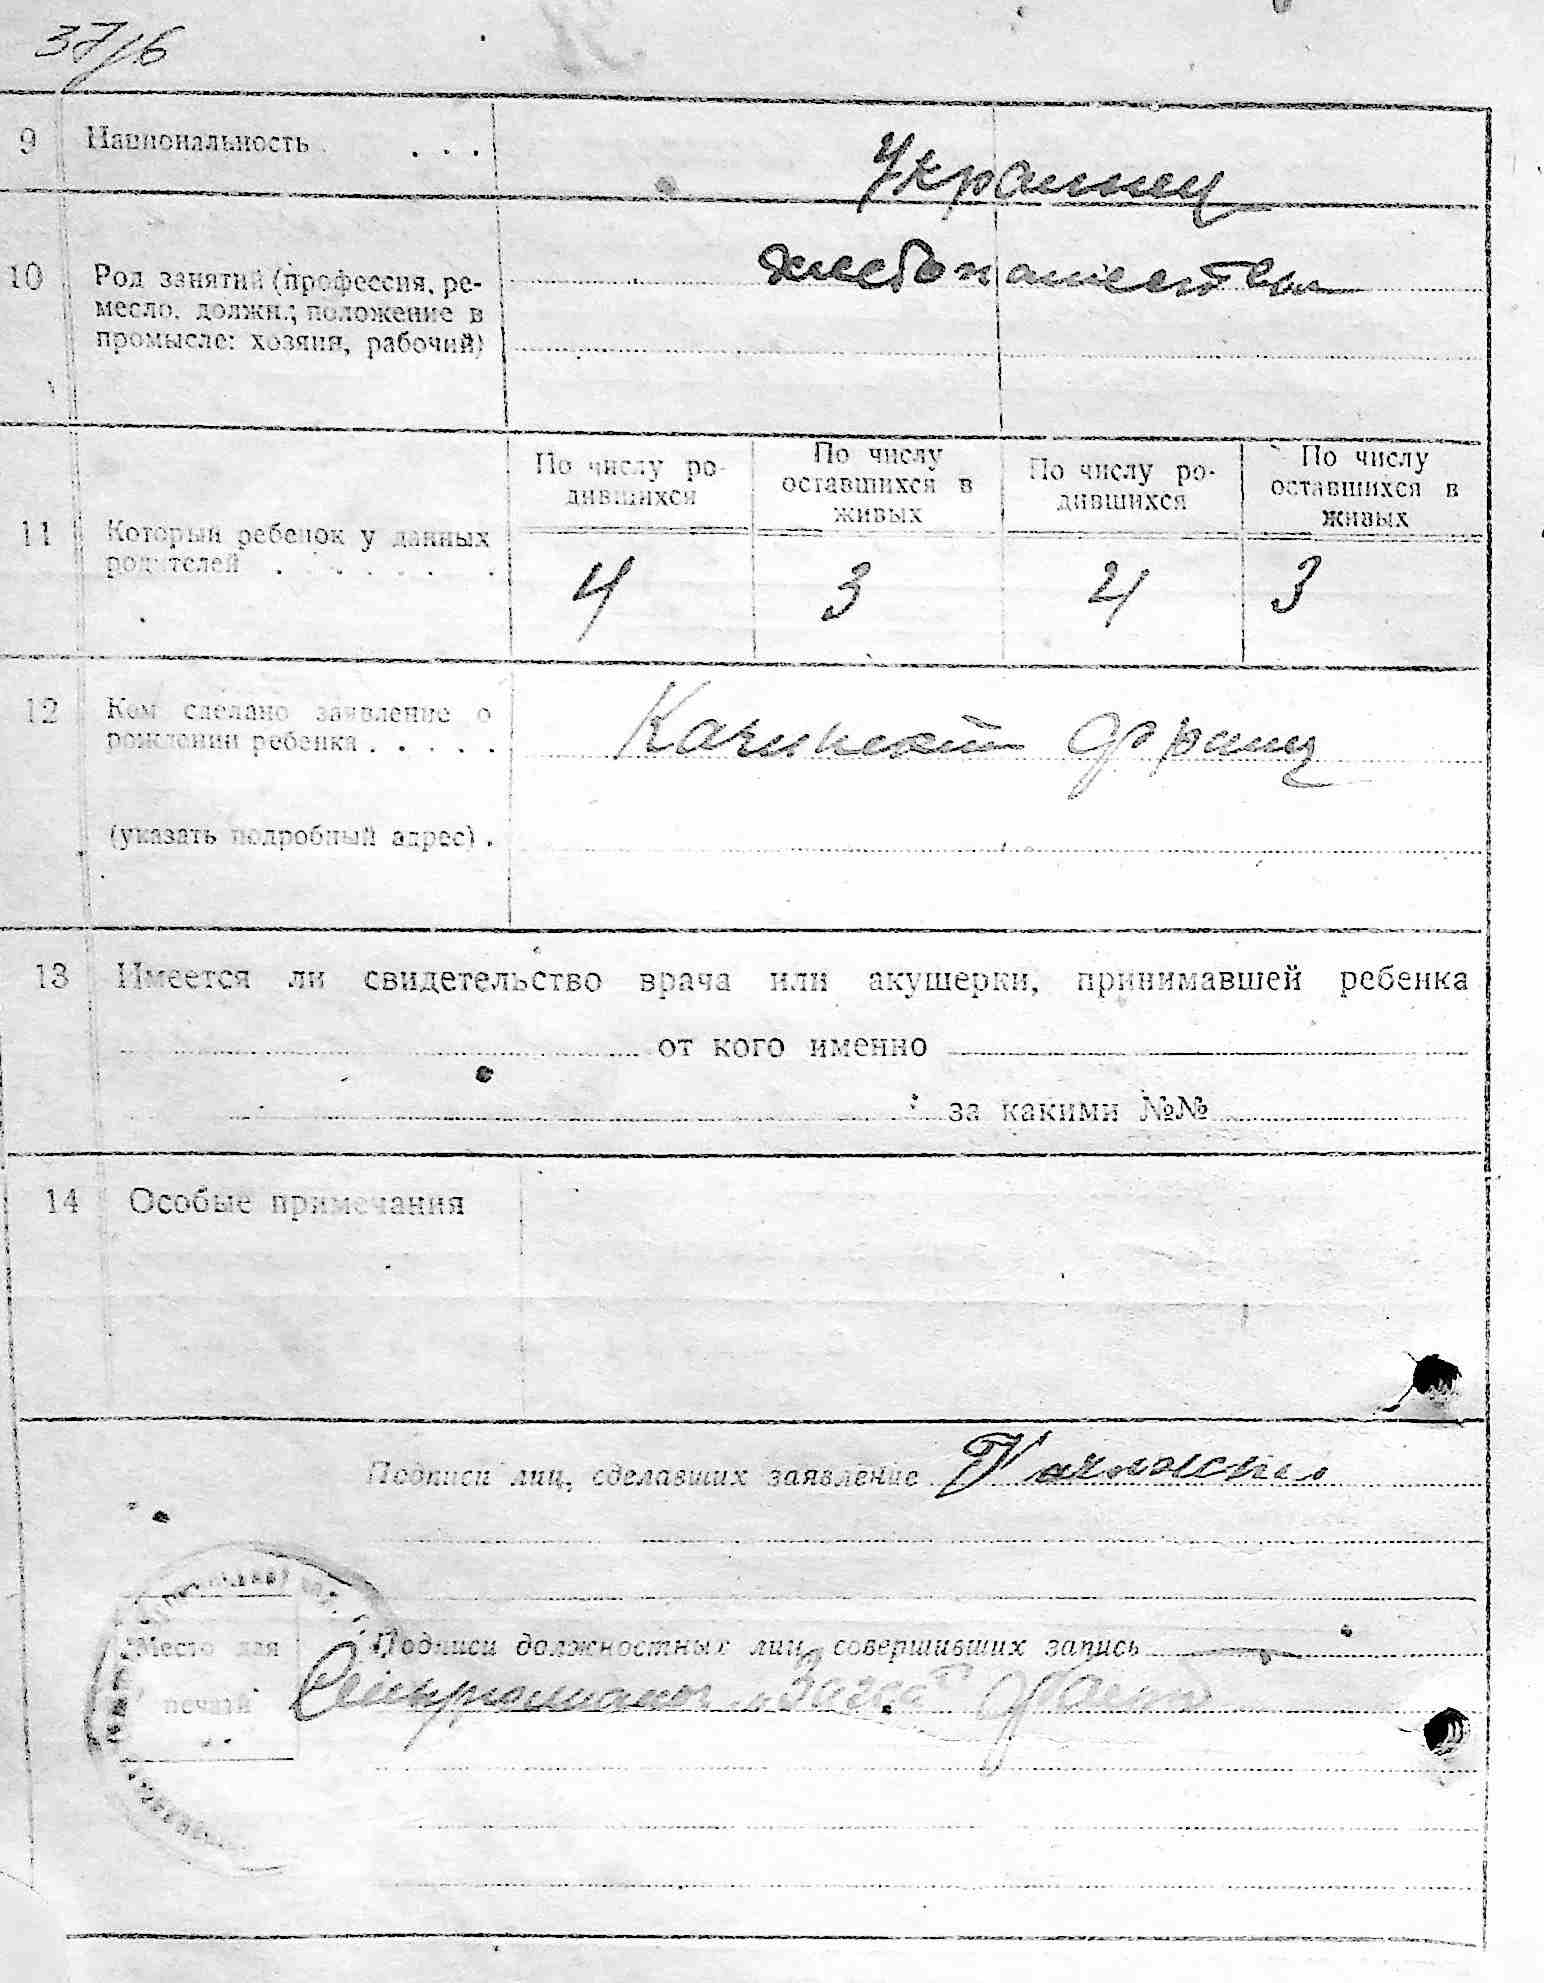 9 Национальность . . .
Украинец
10 Род занятий (профессия, ре-
месло, должн.; положение в
промысле: хозяин, рабочий)
хлебопашество
11 Который ребенок у данных
родителей . . . . . . .
По числу ро-
дившихся
По числу
оставшихся в
живых
По числу ро-
дившихся
По числу
оставшихся в
живых
4 3 4 3
12 Кем сделано заявление о
рождении ребенка . . . . .
(указать подробный адрес) .
13 Имеется ли свидетельство врача или акушерки, принимавшей ребенка
от кого именно
за какими №№
14 Особые примечания
Подписи лиц, сделавших заявление
Место для
печати
Подписи должностных лиц, совершивших запись